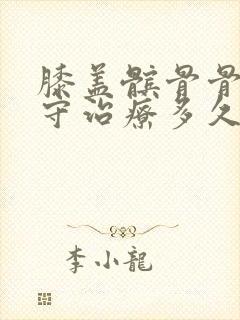 膝盖髌骨骨
守治疗多久
李小龍